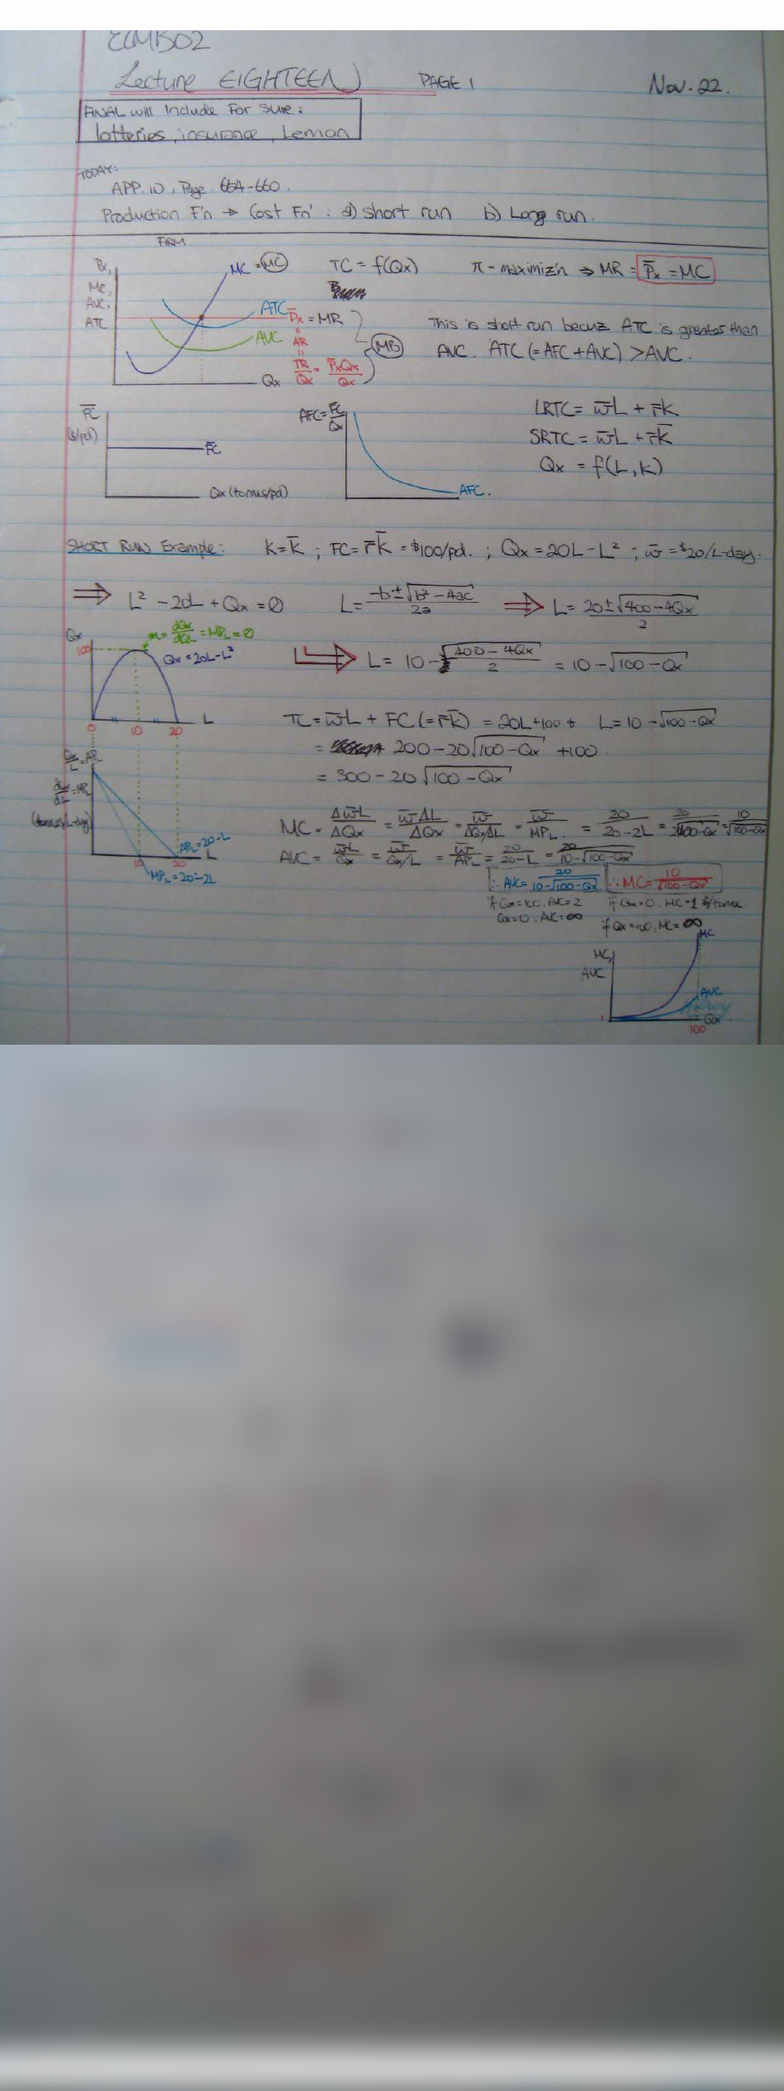 ECMB02
Lecture EIGHTEEN PAGE 1 Nov. 22.
FINAL will Include For Sure:
lotteries, insurance, Lemon
TODAY:
APP. 10, Page 664-660.
Production F'n → Cost Fn' : a) short run b) Long run.
FIRM
MC = MC TC = f(Qx) π-maximiz'n ⇒ MR = P̅x = MC
MC,
AVC,
ATC
ATC P̅x = MR
AVC
AR
TR/Qx = P̅xQx/Qx
MB
Qx
This is short run becuz ATC is greater than
AVC. ATC (=AFC + AVC) > AVC.
F̅C̅
($/pd)
F̅C̅
Qx (tonnes/pd)
AFC = FC/Qx
AFC.
LRTC = w̅L + r̅K
SRTC = w̅L + r̅K̅
Qx = f(L, K)
SHORT RUN Example: K = K̅ ; FC = r̅K̅ = $100/pd. ; Qx = 20L - L² ; w̅ = $20/L-day.
⇒ L² - 20L + Qx = 0 L = -b ± √b² - 4ac / 2a ⇒ L = 20 ± √400 - 4Qx / 2
Qx
100
m = dQx/dL = MPL = 0
Qx = 20L - L²
0 10 20 L
⇒ L = 10 - √400 - 4Qx / 2 = 10 - √100 - Qx
TC = w̅L + FC (= r̅K̅) = 20L + 100 L = 10 - √100 - Qx
= 200 - 20√100 - Qx + 100
= 300 - 20√100 - Qx
Qx/L = APL
dQx/dL = MPL
(tonnes/L-day)
APL = 20 - L
10 20 L
MPL = 20 - 2L
MC = Δw̅L/ΔQx = w̅ΔL/ΔQx = w̅/ΔQx/ΔL = w̅/MPL = 20/20-2L = 20/2√100-Qx = 10/√100-Qx
AVC = w̅L/Qx = w̅/Qx/L = w̅/APL = 20/20-L = 20/10-√100-Qx
∴ AVC = 20/10-√100-Qx ∴ MC = 10/√100-Qx
if Qx = 100, AVC = 2 if Qx = 0, MC = 1 $/tonne
Qx = 0, AVC = ∞ if Qx = 100, MC = ∞
MC
MC,
AVC
AVC
Qx
100